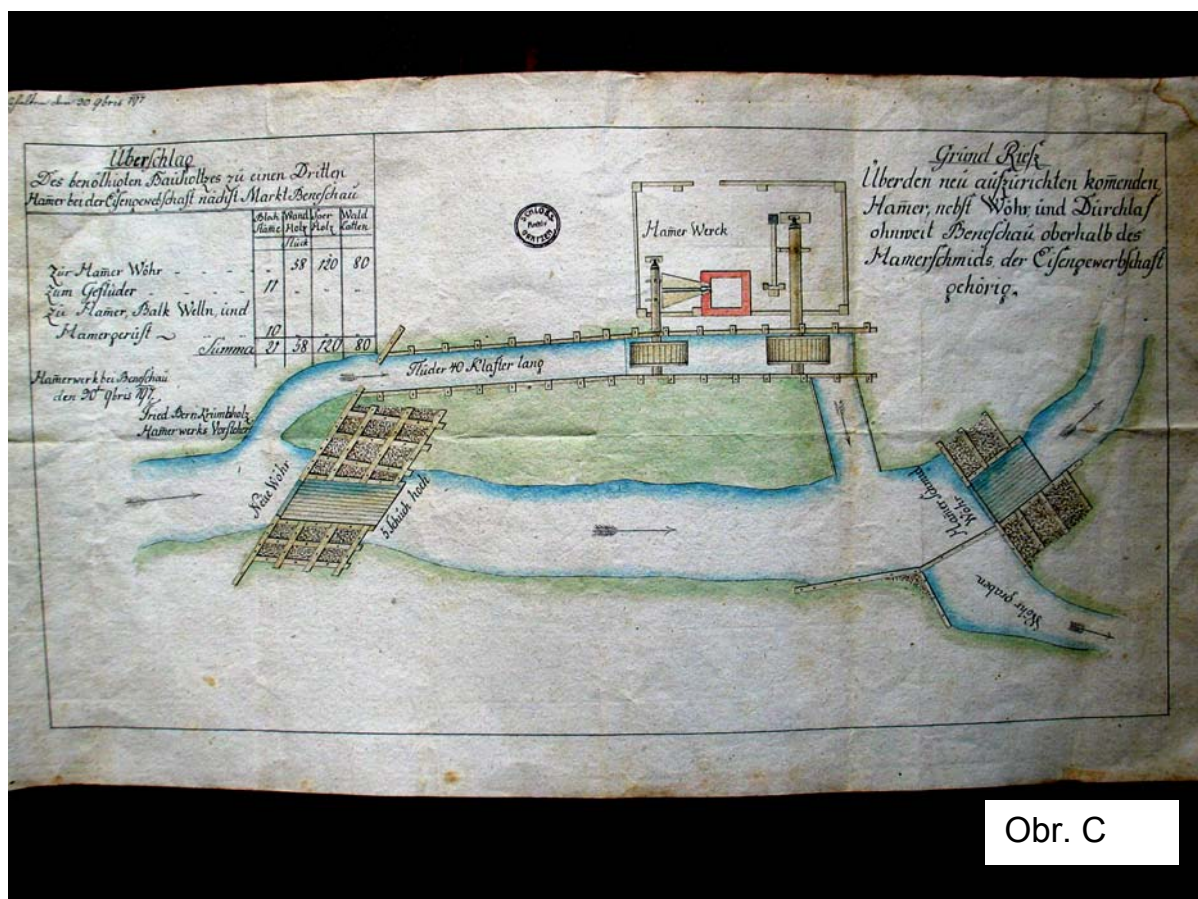 den 30 9bris 797
Überschlag
Des benöthigten Bauholtzes zu einen Dritten
Hamer bei der Eisengewerbschaft nächst Markt Beneschau
Bloch Wand Holz Holz Wald Latten
Stück
Zur Ham̄er Wöhr - - - - - 58 120 80
Zum Geflüder - - - - 11 - - -
Zu Ham̄er, Balk Welln, und
Hamergerüst 10
Sum̄a 21 58 120 80
Ham̄erwerk bei Beneschau
den 30t 9bris 797.
Fried. Bern. Krumbholz
Ham̄erwerks Vorsteher
SCHLOSS
Archiv
GRATZEN
Ham̄er Werck
Grund Riess
Über den neü aufzurichten kom̄enden
Ham̄er, nebst Wöhr, und Dürchlas
ohnweit Beneschau oberhalb des
Hamerschmids, der Eisengewerbschaft
gehörig.
Flüder 40 Klafter lang
Neüe Wöhr
5 Schuch hoch
Ham̄er Schmid
Wöhr
Wöhr graben
Obr. C